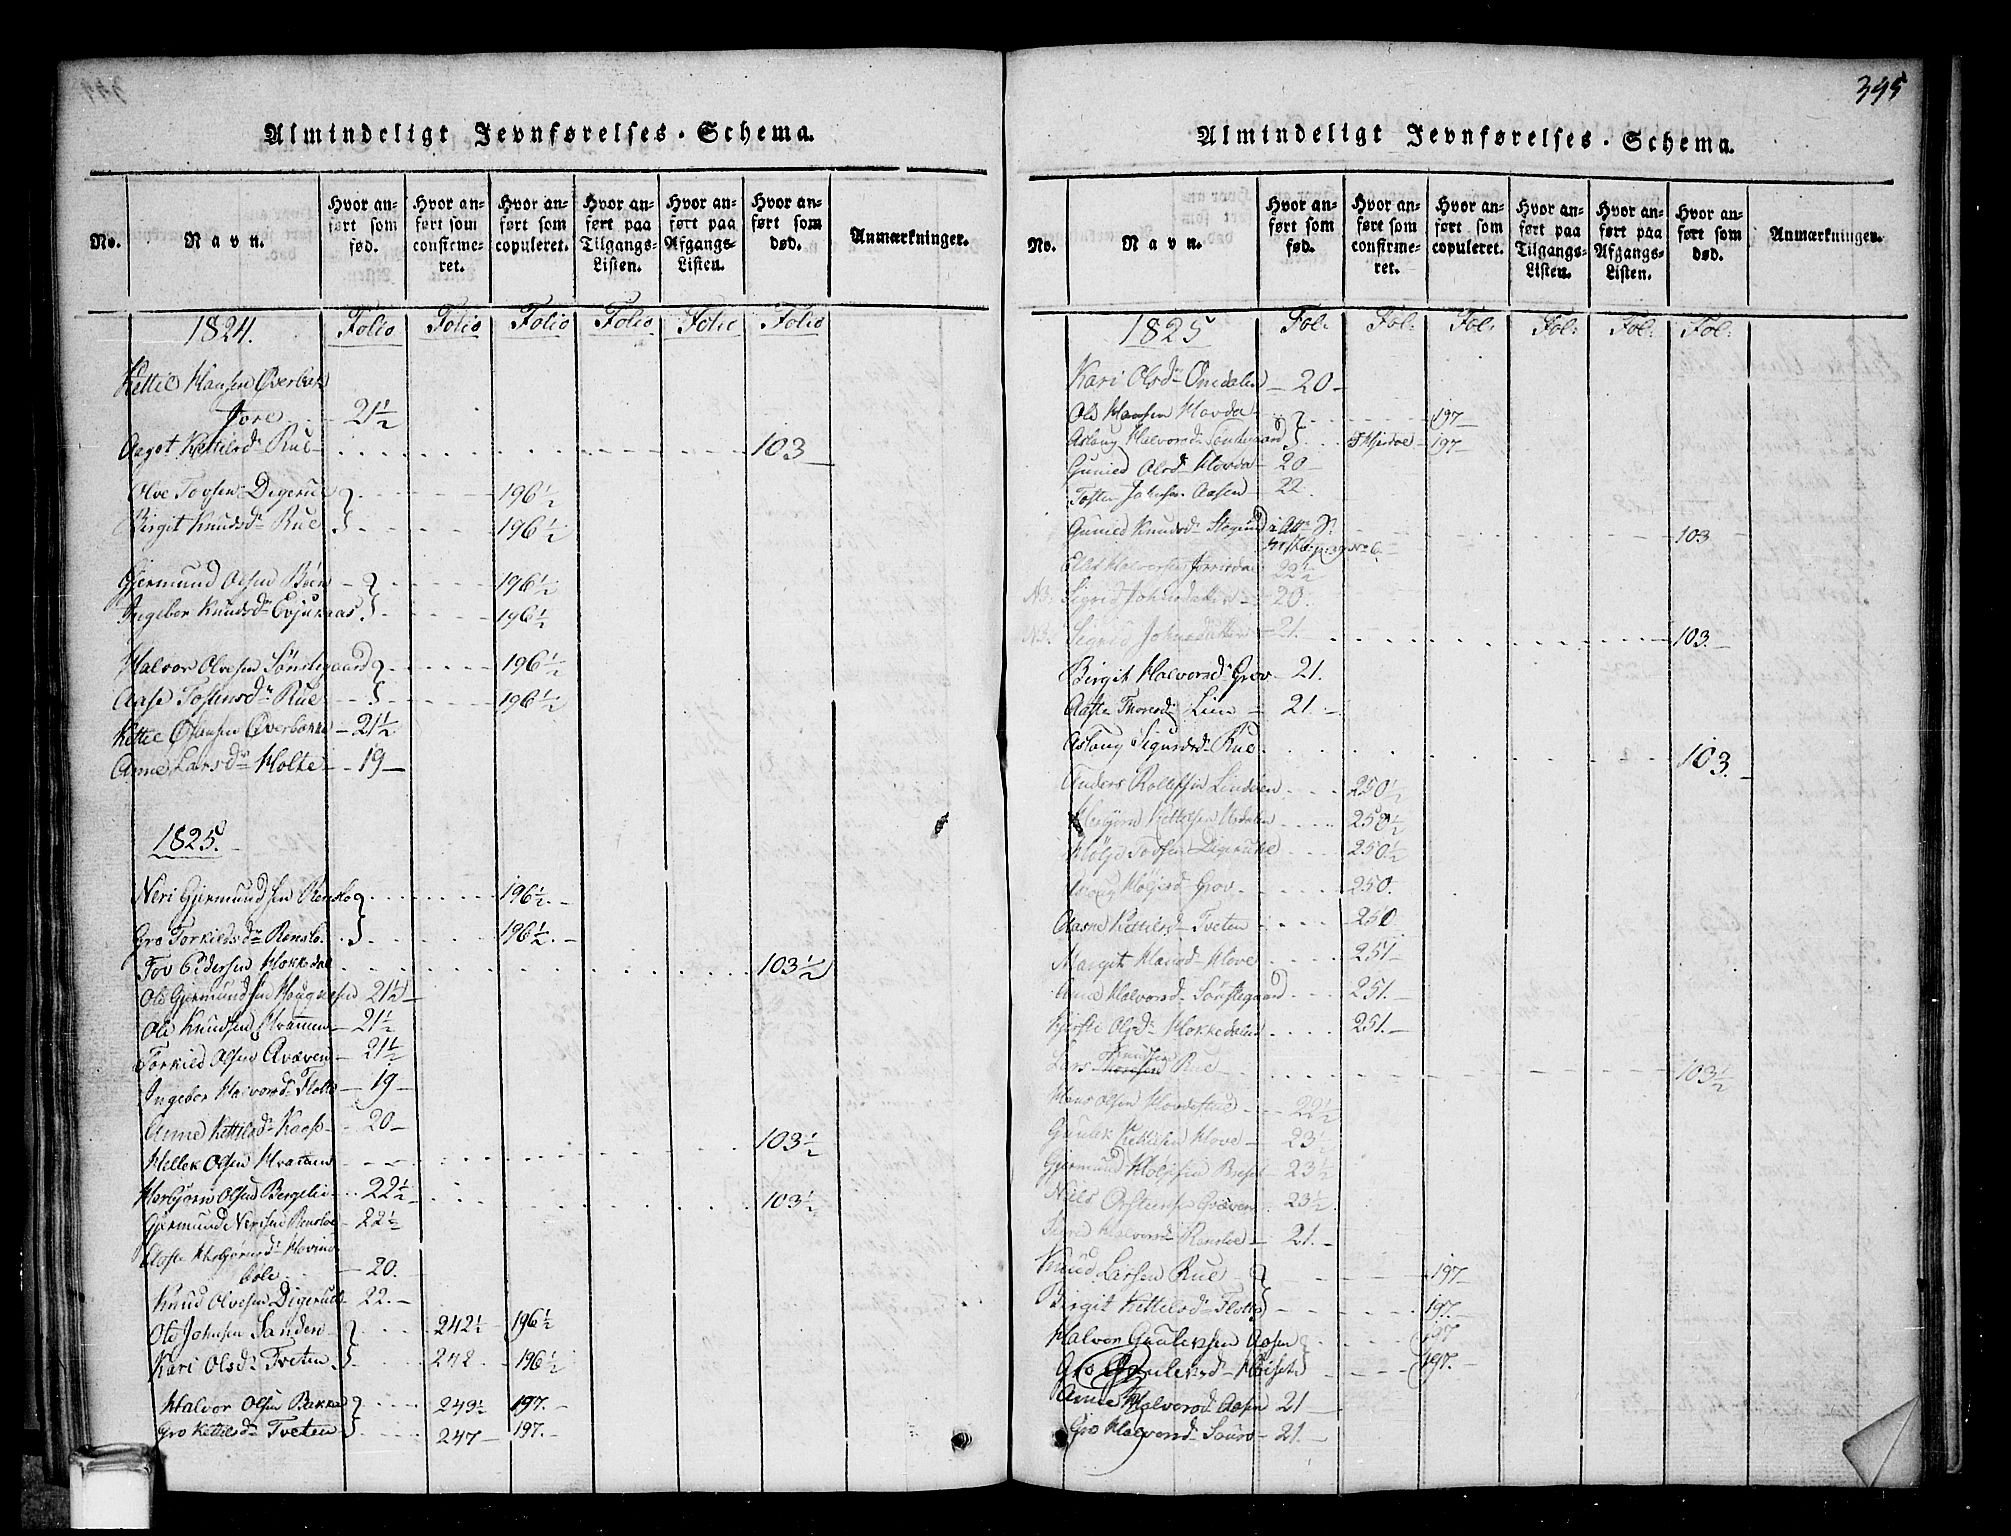 Almindeligt Jevnførelses-Schema.
No. Navn. Hvor anført som fød. Hvor anført som confirmeret. Hvor anført som copuleret. Hvor anført paa Tilgangs-Listen. Hvor anført paa Afgangs-Listen. Hvor anført som død. Anmærkninger.
1824. Folio Folio Folio Folio Folio Folio
Kettil Hansen Øverbøe
Tore 21½
Aaget Kettilsd: Rue 103
Olve Tovsen Digerud 196½
Birgit Knudsd: Rue 196½
Gjermund Olsen Böen 196½
Ingebor Knudsd: Evjuraas 196½
Halvor Olvesen Sønstegaard 196½
Aase Tostensd: Rue 196½
Kettil Øverbøkke 21½
Anne Larsd: Holte 19
1825.
Neri Gjermundsen Rensloe 196½
Gro Torkildsd: Renslo 196½
Tov Pedersen Hokkedal 103½
Ole Gjermundsen 21½
Ole Knudsen Hvammen 21½
Torkild Olsen Qväven 21½
Ingebor Halvorsd: Flotte 19
Anne Kettilsd: Kaase 20
Hellek Olsen Hvammen 103½
Herbjörn Olsen Bergelie 22½ 103½
Gjermund Nerisen Rensloe 22½
Aaste Herbjörnsd: Hovinbøle 20.
Knud Olvesen Digerud 22.
Ole Johnsen Sanden 242½ 196½
Kari Olsd: Tveten 242 196½
Halvor Olsen Bakken 249½ 197.
Gro Kettilsd: Tveten 247 197.
395
Almindeligt Jevnførelses-Schema.
No. Navn. Hvor anført som fød. Hvor anføre som confirmeret. Hvor anført som copuleret. Hvor anført paa Tilgangs-Listen. Hvor anført paa Afgangs-Listen. Hvor anført som død. Anmærkninger.
1825 Fol: Fol: Fol: Fol: Fol: Fol:
Kari Olsd: Omdalen 20
Ole Hansen Hovda 197
Aslaug Halvorsd: Sønstegaard 197
Gunild Olsd: Hovda 20
Tosten Johnsen Aasen 22.
Gunild Knudsd: 103
Halvorsen 22½
NB. Sigrid Johnsdatter 20.
NB. Sigrid Johnsdatter 21. 103.
Birgit Halvorsd: Grov 21.
Aaste Thoresd: Lien 21.
Aslaug Sigurdsd: Rue 103.
Anders Rollefsen Lindven 250½
Herbjörn Kettilsen 250½
Hölje Tovsen Digerud 250½
Aslaug Höljesd: Grov 250.
Aasne Kettilsd: Tveten 250
Margit Hansd: Hove 251
Anne Halvorsd: Sønstegaard 251.
Kjerste Olsd: Hokkedalen 251.
Knudsen
Lars Thoresen Rue 103½
Hans Olsen Hovdestue 22½
Gunlek Kettilsen Hove 23½
Gjermund 23½
Niels Qväven 23½
Sigrid Halvorsd: Rensloe 21.
Knud Larsen Rue 197
Birgit Kettilsd: Flotte 197.
Halvor Gunleksen Aasen 197
Gro Gunleksd: 197.
Anne Halvorsd: Aasen 21
Gro Halvorsd: 21.